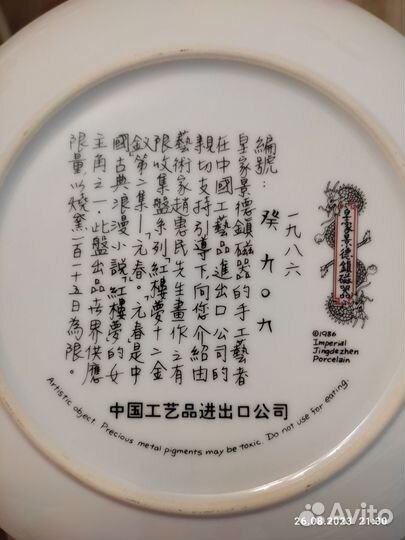 皇家景德鎮磁器
©1986
Imperial
Jingdezhen
Porcelain
一九八六
編號：癸九〇九
皇家景德鎮磁器的手工藝者
在中國工艺品進出口公司的
親切支持引導下向您介紹由
藝術家趙惠民先生畫作之有
限收集盤系列「紅樓夢十二金
釵」第二集—元春。元春是中
國古典浪漫小說「紅樓夢」的女
主角之一。此盤出品世界供應
限量以燒窯一百一十五日為限。
中国工艺品进出口公司
Artistic object. Precious metal pigments may be toxic. Do not use for eating.
Avito
26.08.2023 21:30